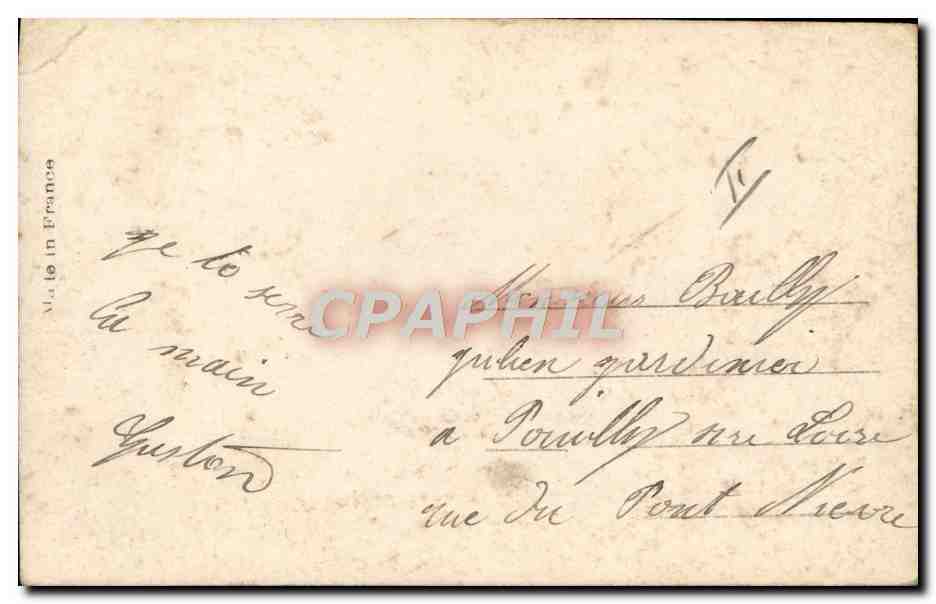 Made in France
ge te serre
la main
Gaston
Monsieur Bailly
julien gardinier
a Pouilly sur Loire
rue du Pont Nievre
CPAPHIL